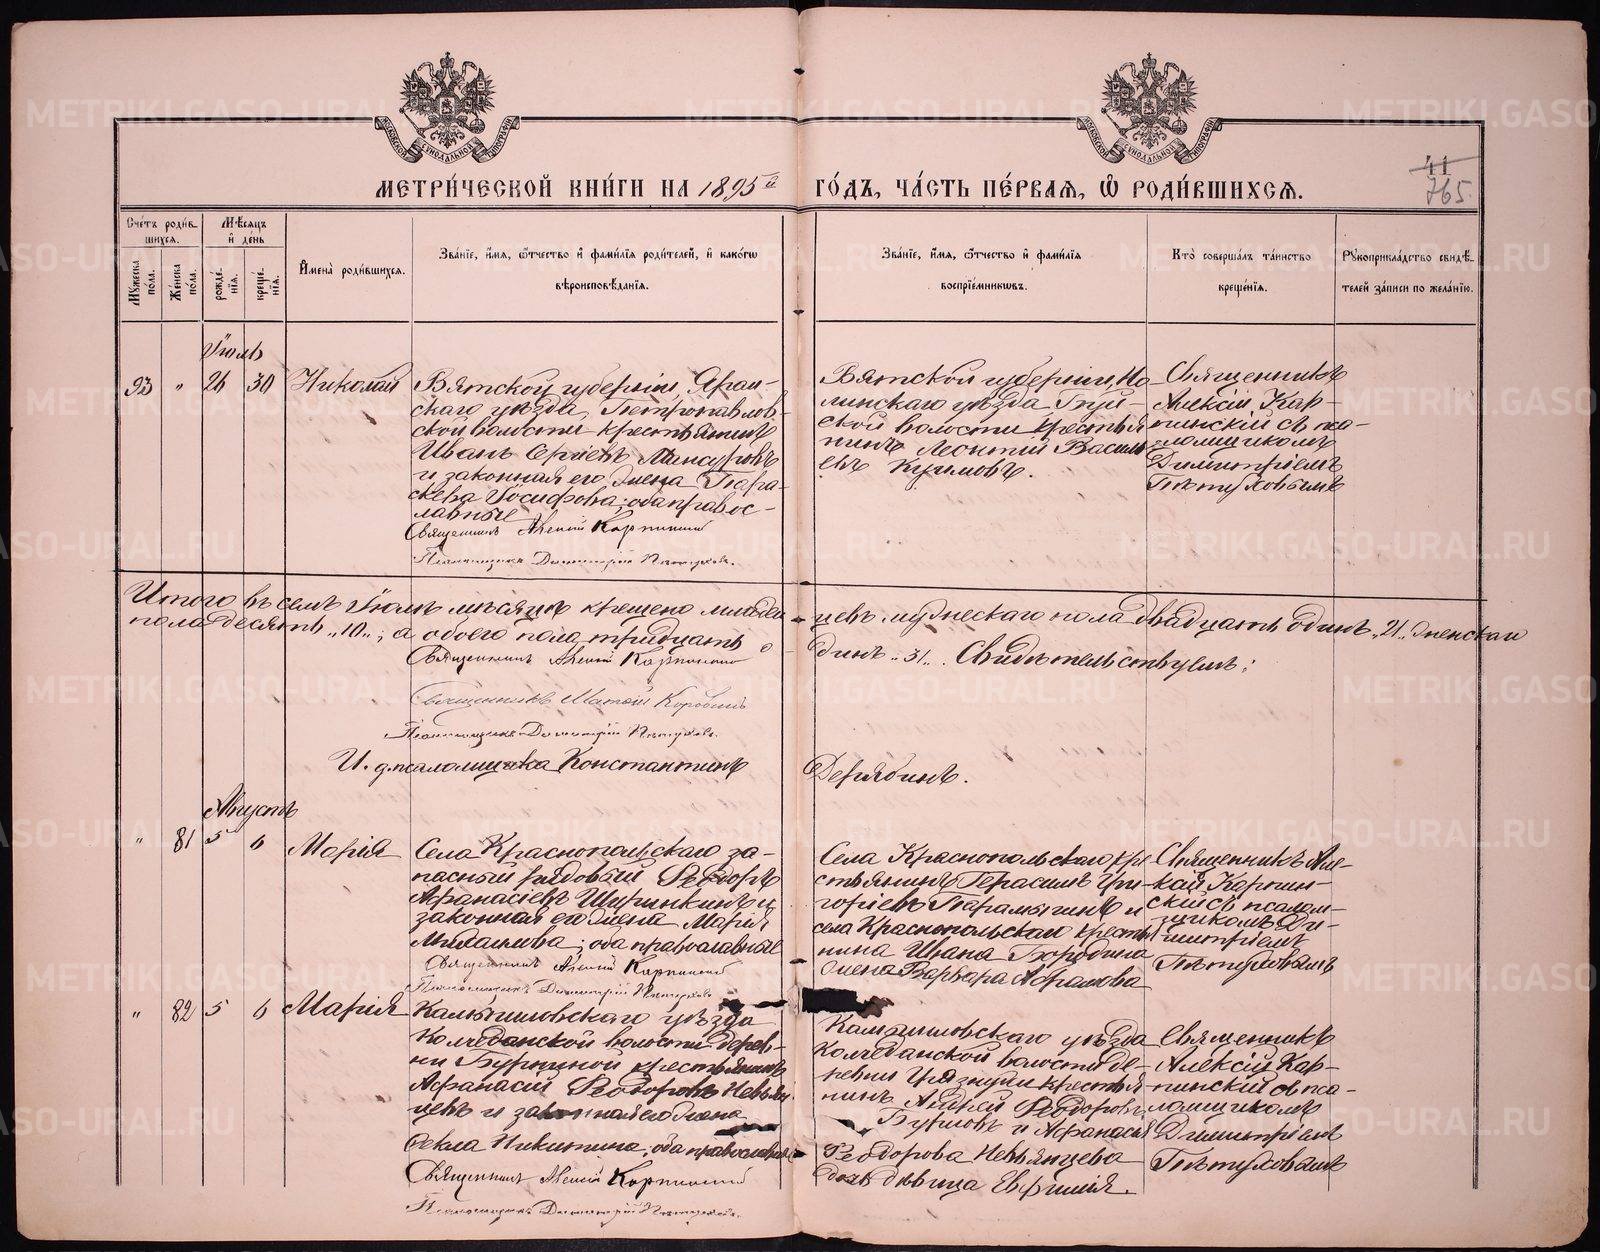 МЕТРИ́ЧЕСКОЙ КНИ́ГИ НА 1895й ГО́ДЪ, ЧА́СТЬ ПЕ́РВАЯ, Ѡ҆ РОДИ́ВШИХСЯ.
41
765.
Сче́тъ роди́в-
шихся.
Мѣ́сяцъ
и҆ де́нь
Му́жеска по́ла.
Же́нска по́ла.
рожде́нїя.
креще́нїя.
И҆мена̀ роди́вшихся.
Зва́нїе, и҆́мя, ѻ҆́тчество и҆ фами́лїя роди́телей, и҆ како́гѡ
вѣроисповѣ́данїя.
Зва́нїе, и҆́мя, ѻ҆́тчество и҆ фами́лїя
воспрїе́мникѡвъ.
Кто̀ соверша́лъ та́инство
креще́нїя.
Рꙋкоприкла́дство свидѣ́-
телей за́писи по жела́нїю.
Іюль
93 " 26 30 Николай
Вятской губерніи, Яран-
скаго уѣзда, Петропавлов-
ской волости крестьянинъ
Иванъ Сергѣевъ
и законная его жена Пара-
скева Іосифова; оба правос-
лавные
Священникъ Алексій Карпинскій
Псаломщикъ Димитрій Пѣтуховъ.
Вятской губерніи, Но-
линскаго уѣзда
ской волости крестья
нинъ Леонтій Василь
евъ
Священникъ
Алексій Кар-
пинскій съ пса-
ломщикомъ
Димитріемъ
Пѣтуховымъ
Итого въ семъ Іюлѣ мѣсяцѣ крещено младен цевъ мужескаго пола двадцать одинъ „21„ женскаго
пола десять „10„; а обоего пола тридцать о- динъ „31„. Свидѣтельствуемъ:
Священникъ Алексій Карпинскій
Священникъ Матѳій Коровинъ
Псаломщикъ Димитрій Пѣтуховъ.
И. д. псаломщика Константинъ Дерябинъ.
Августъ
" 81 5 6 Марія
Села Краснопольскаго за-
пасный рядовый Ѳеодоръ
Афанасіевъ Ширинкинъ и
законная его жена Марія
Михаилова; оба православные
Священникъ Алексій Карпинскій
Псаломщикъ Димитрій Пѣтуховъ
Села Краснопольскаго кре
стьянинъ Герасимъ Гри-
горіевъ и
села Краснопольскаго крестья
нина Ивана Бородина
жена Варвара
Священникъ Але-
ксій Карпин-
скій съ псалом-
щикомъ Ди-
митріемъ
Пѣтуховымъ
" 82 5 6 Марія
Камышловскаго уѣзда
Колчеданской волости дерев-
ни Бурниной крестьянинъ
Афанасій Ѳеодоровъ Невьян
цевъ и законная его жена
Ѳекла Никитина, оба православные
Священникъ Алексій Карпинскій
Псаломщикъ Димитрій Пѣтуховъ.
Камышловскаго уѣзда
Колчеданской волости де-
ревни крестья
нинъ Андрей Ѳеодоровъ
и Афанасія
Ѳеодорова Невьянцева
дочь дѣвица Евфимія.
Священникъ
Алексій Кар-
пинскій съ пса-
ломщикомъ
Димитріемъ
Пѣтуховымъ
METRIKI.GASO-URAL.RU